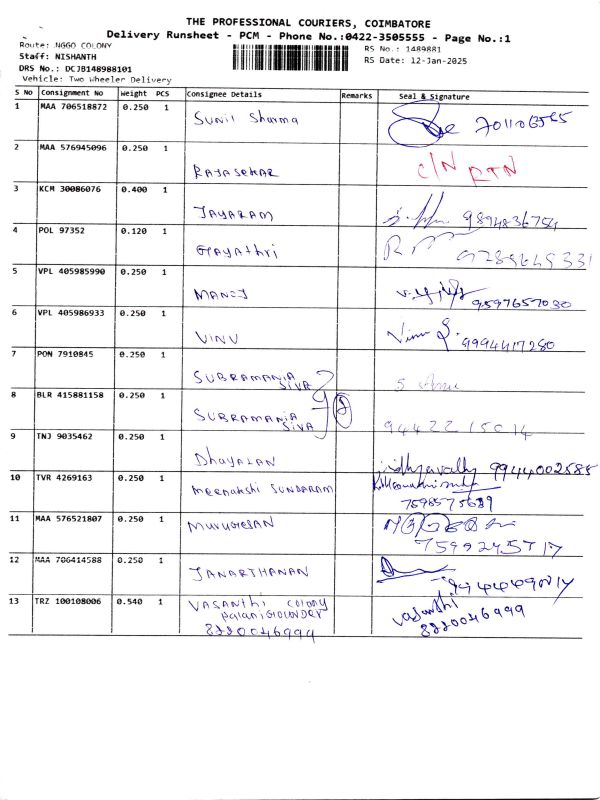 THE PROFESSIONAL COURIERS, COIMBATORE
Delivery Runsheet - PCM - Phone No.:0422-3505555 - Page No.:1
Route: NGGO COLONY
RS No.: 1489881
Staff: NISHANTH
RS Date: 12-Jan-2025
DRS No.: DCJB148988101
Vehicle: Two Wheeler Delivery
S No Consignment No Weight PCS Consignee Details Remarks Seal & Signature
1 MAA 706518872 0.250 1
Sunil Sharma
2 MAA 576945096 0.250 1
RAJASEKAR C/N RTN
3 KCM 30086076 0.400 1
JAYARAM 9894836754
4 POL 97352 0.120 1
GAYAthri 9789649331
5 VPL 405985990 0.250 1
MANOJ 9597657030
6 VPL 405986933 0.250 1
VINU Vinu S. 9994417280
7 PON 7910845 0.250 1
SUBRAMANIA
SIVA
8 BLR 415881158 0.250 1
SUBRAMANIA
SIVA 2 9442215014
9 TNJ 9035462 0.250 1
DhayALAN 9944002585
10 TVR 4269163 0.250 1
Meenakshi SUNDARAM
7598575689
11 MAA 576521807 0.250 1
MURUGESAN
12 MAA 706414588 0.250 1
JANARTHANAN
13 TRZ 100108006 0.540 1
VASANthi colony vasanthi
8220046999 8220046999